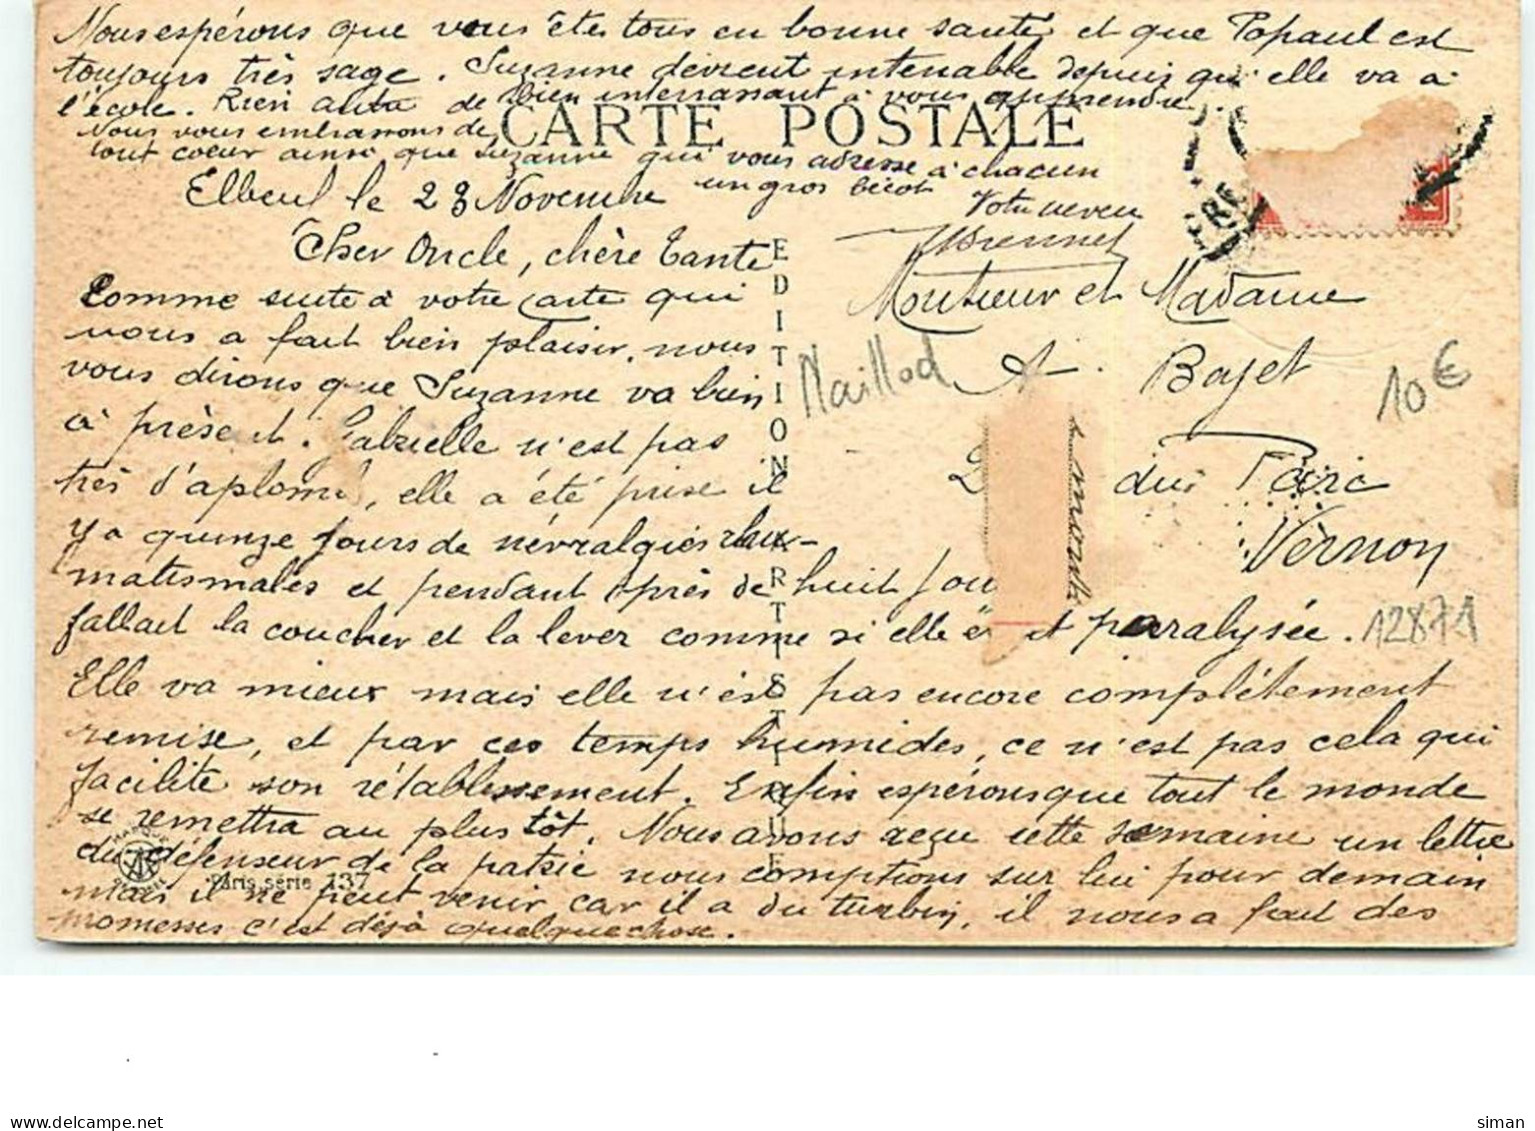 Nous espérons que vous êtes tous en bonne santé et que Popaul est
toujours très sage. Suzanne devient intenable depuis qu'elle va à
l'école. Rien autre de bien interressant à vous apprendre.
Nous vous embrassons de
tout coeur ainsi que Suzanne qui vous adresse à chacun
un gros bécot
Votre neveu
CARTE POSTALE
Elbeuf le 28 Novembre
Cher Oncle, chère Tante
Comme suite à votre carte qui
nous a fait bien plaisir, nous
vous dirons que Suzanne va bien
à présent. Gabrielle n'est pas
très d'aplomb, elle a été prise il
y a quinze jours de névralgies rhu-
matismales et pendant près de huit jou
fallait la coucher et la lever comme si elle é it paralysée.
Elle va mieux mais elle n'est pas encore complètement
remise, et par ces temps humides, ce n'est pas cela qui
facilite son rétablissement. Enfin espérons que tout le monde
se remettra au plus tôt. Nous avons reçu cette semaine un lettre
du défenseur de la patrie nous comptions sur lui pour demain
mais il ne peut venir car il a du turbin, il nous a fait des
promesses c'est déjà quelque chose.
EDITION ARTISTIQUE
Paris série 137
Monsieur et Madame
A. Bajet
du Parc
Vernon
Maillod
10 €
12871
siman